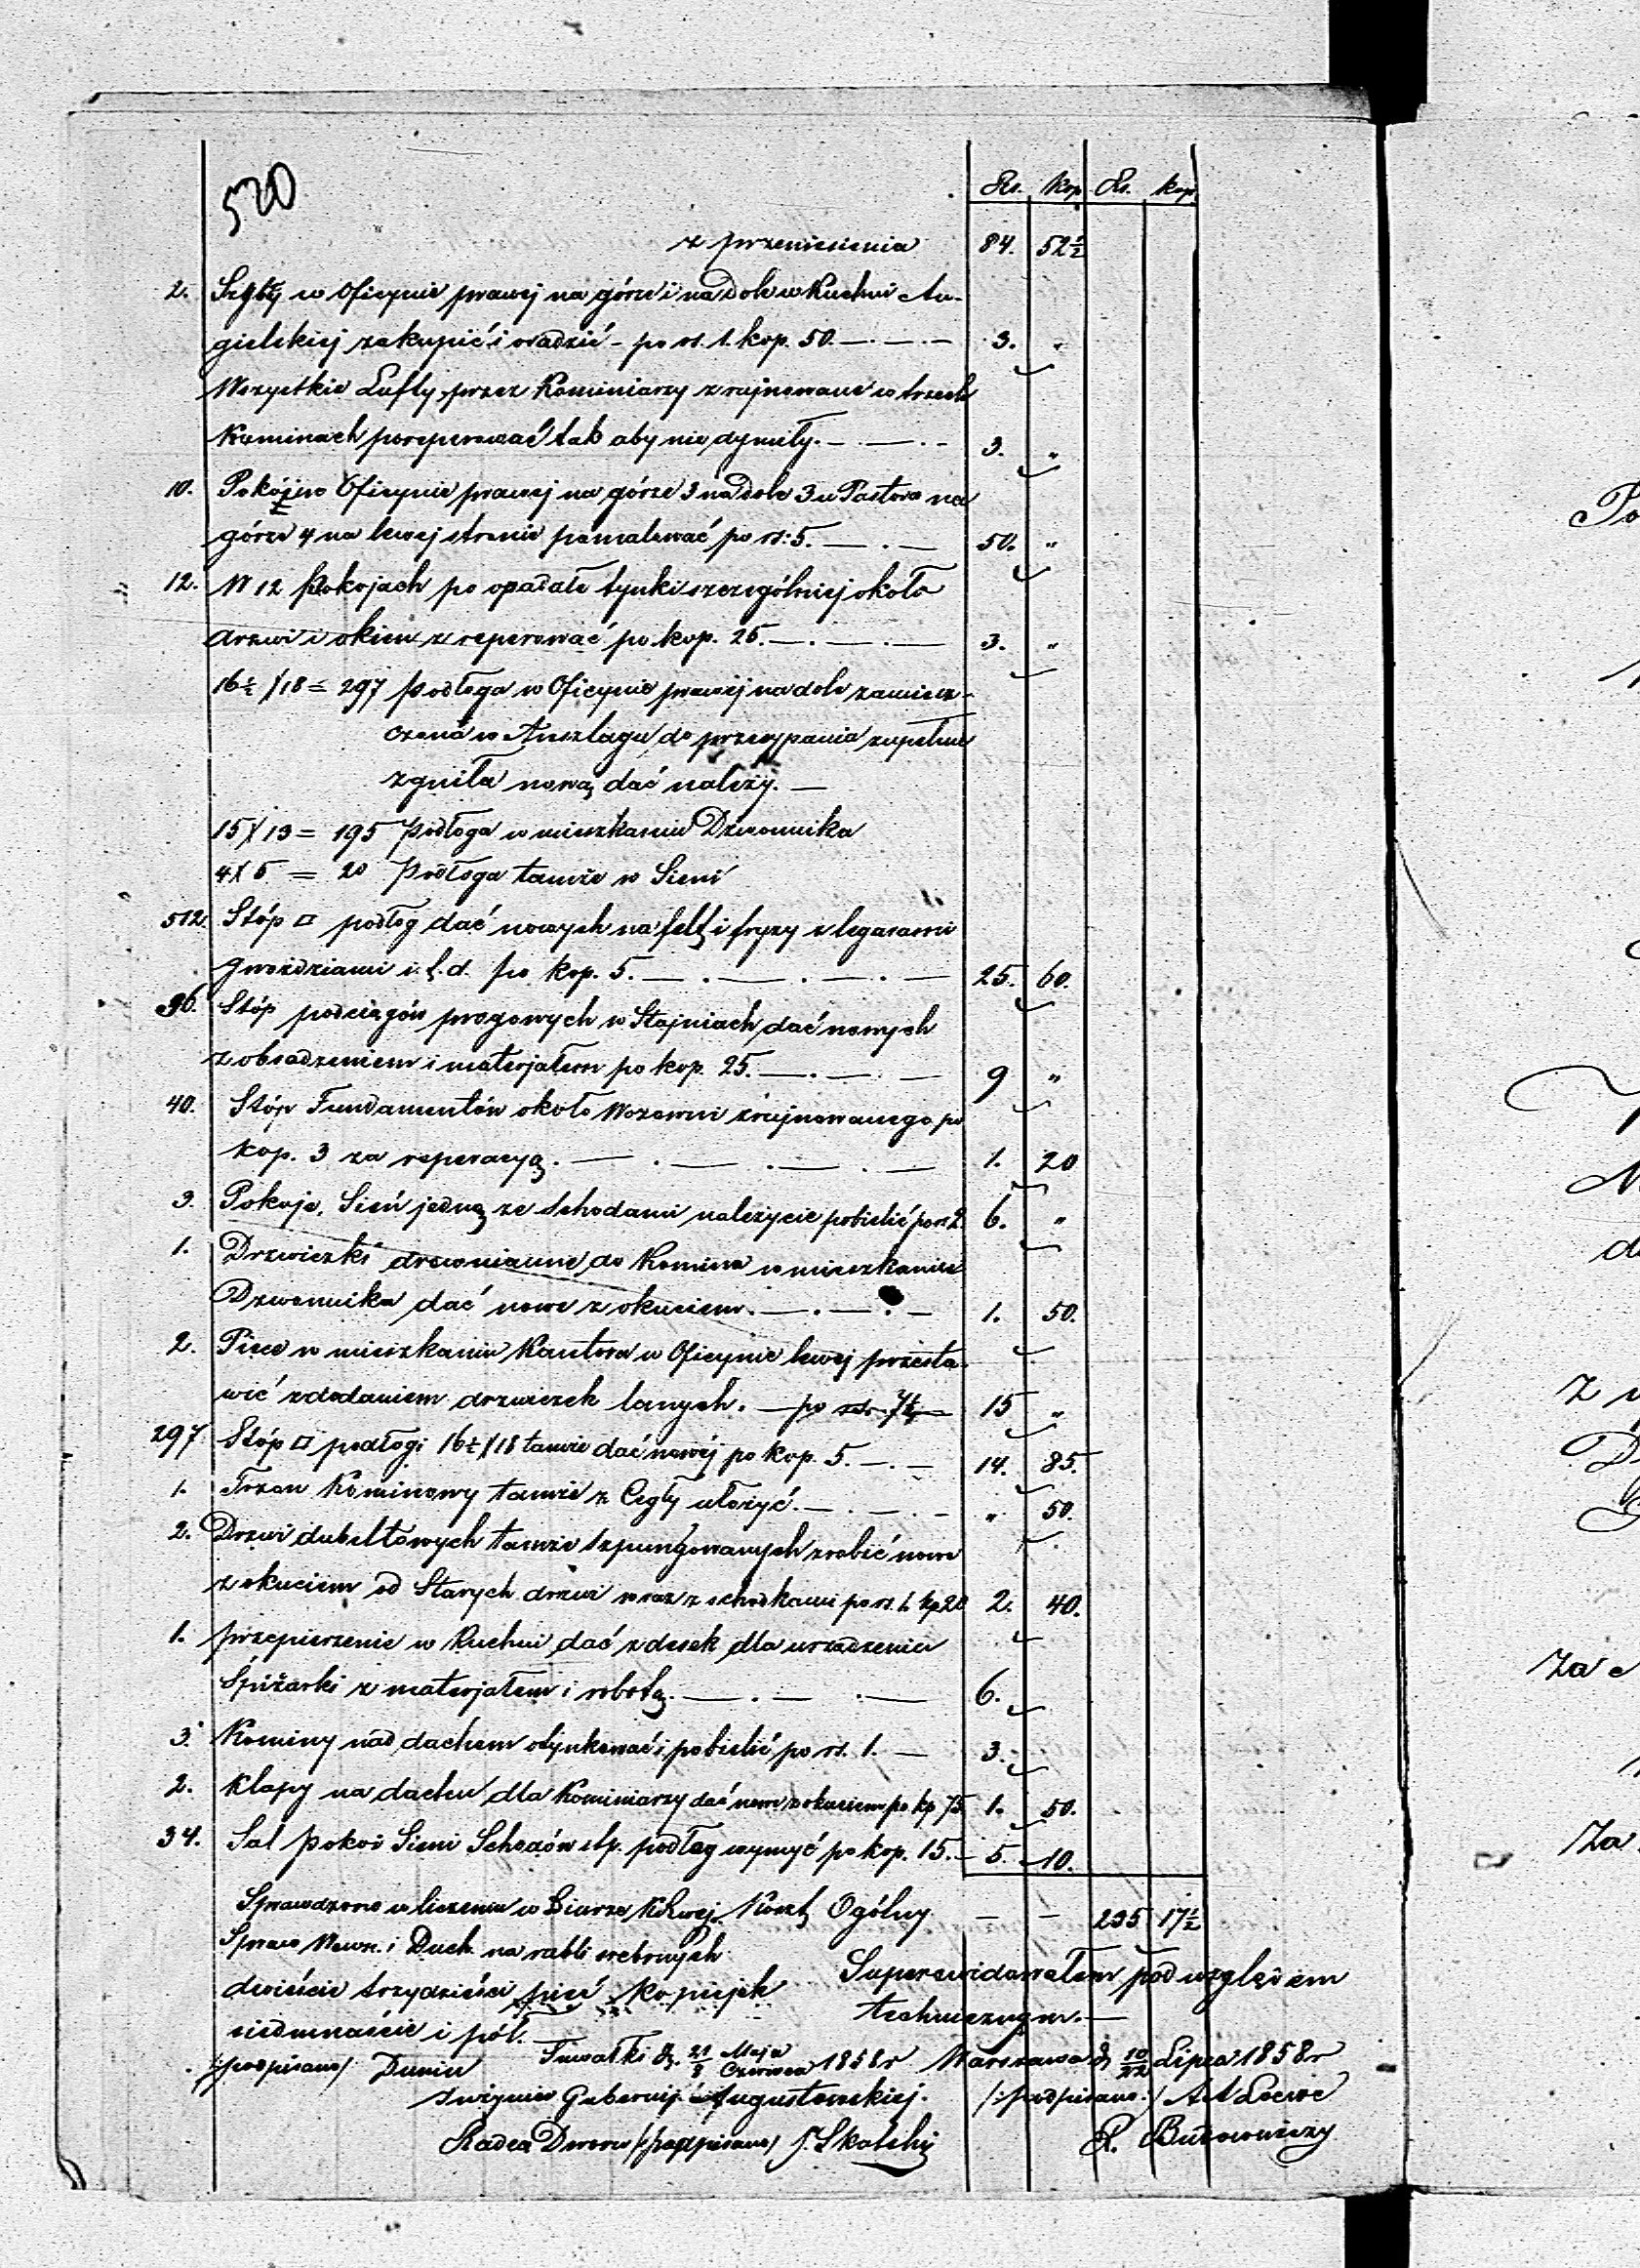 520
Rs. kop. Rs. kop.
z przeniesienia 84. 52½
2. Szyby w Oficynie prawej na górze i na dole w Kuchni An-
gielskiej zakupić i osadzić - po rs. 1. kop. 50. 3. "
Wszystkie Lufty przez Kominiarzy zrujnowane w trzech
Kominach poreperować tak aby nie dymiły. 3. "
10. Pokoi w Oficynie prawej na górze 3 na dole 3 u Pastora na
górze 4 na lewej stronie pomalować po rs: 5. 50. "
12. W 12 Pokojach po opadałe tynki szczególniej około
drzwi i okien zreperować po kop. 25. 3. "
16½ / 18 = 297 podłoga w Oficynie prawej na dole zamiesz-
czona w Anszlagu do przesypania zupełnie
zgniła nową dać należy. —
15 / 13 = 195 podłoga w mieszkaniu Dzwonnika
4 / 5 = 20 Podłoga tamże w Sieni
512. Stóp □ podłóg dać nowych na felc i fryzy z legarami
gwoździami i. t. d. po kop. 5. 25. 60.
36. Stóp podciągów progowych w Stajniach dać nowych
z obsadzeniem i materjałem po kop. 25. 9 "
40. Stóp Fundamentów około Wozowni zrujnowanego po
kop. 3 za reperacyą. 1. 20
3. Pokoje, Sień jedną ze schodami należycie pobielić po rs 2. 6. "
1. Drzwiczki drewniane do Komina w mieszkaniu
Dzwonnika dać nowe z okuciem. 1. 50.
2. Piece w mieszkaniu Kantora w Oficynie lewej przesta-
wić z dodaniem drzwiczek lanych. — po rs. 7½ 15 "
297 Stóp □ podłogi 16½ / 18 tamże dać nowéj po kop. 5. 14. 85.
1. Trzon Kominowy tamże z Cegły ułożyć. " 50.
2. Drzwi dubeltowych tamże szpungowanych zrobić nowe
z okuciem od Starych drzwi wraz z schodkami po rs. 1. kp 20 2. 40.
1. przepierzenie w Kuchni dać z desek dla urządzenia
Śpiżarki z materjałem i robotą. 6.
3. Kominy nad dachem otynkować i pobielić po rs. 1. — 3.
2. Klapy na dachu dla Kominiarzy dać nowe z okuciem po kp 75 1. 50.
34. Sal pokoi Sieni Schodów itp. podłóg wymyć po kop. 15. 5. 10.
Sprawdzono w liczeniu w Biurze Koszt Ogólny — — 235 17½
Spraw Wewn. i Duch. na rubli srebrnych
dwieście trzydzieści pięć kopiejek
siedmnaście i pół.
Superewidowałem pod względem
technicznym. —
/podpisano/ Dunin
Suwałki d. 21/2 Maja/Czerwca 1858 r Warszawa d 10/22 Lipca 1858 r
Inżynier Gubernij Augustowskiej. /:podpisano:/ Loewe
Radca Dworu /podpisano/ J. Skalski R. Budowniczy